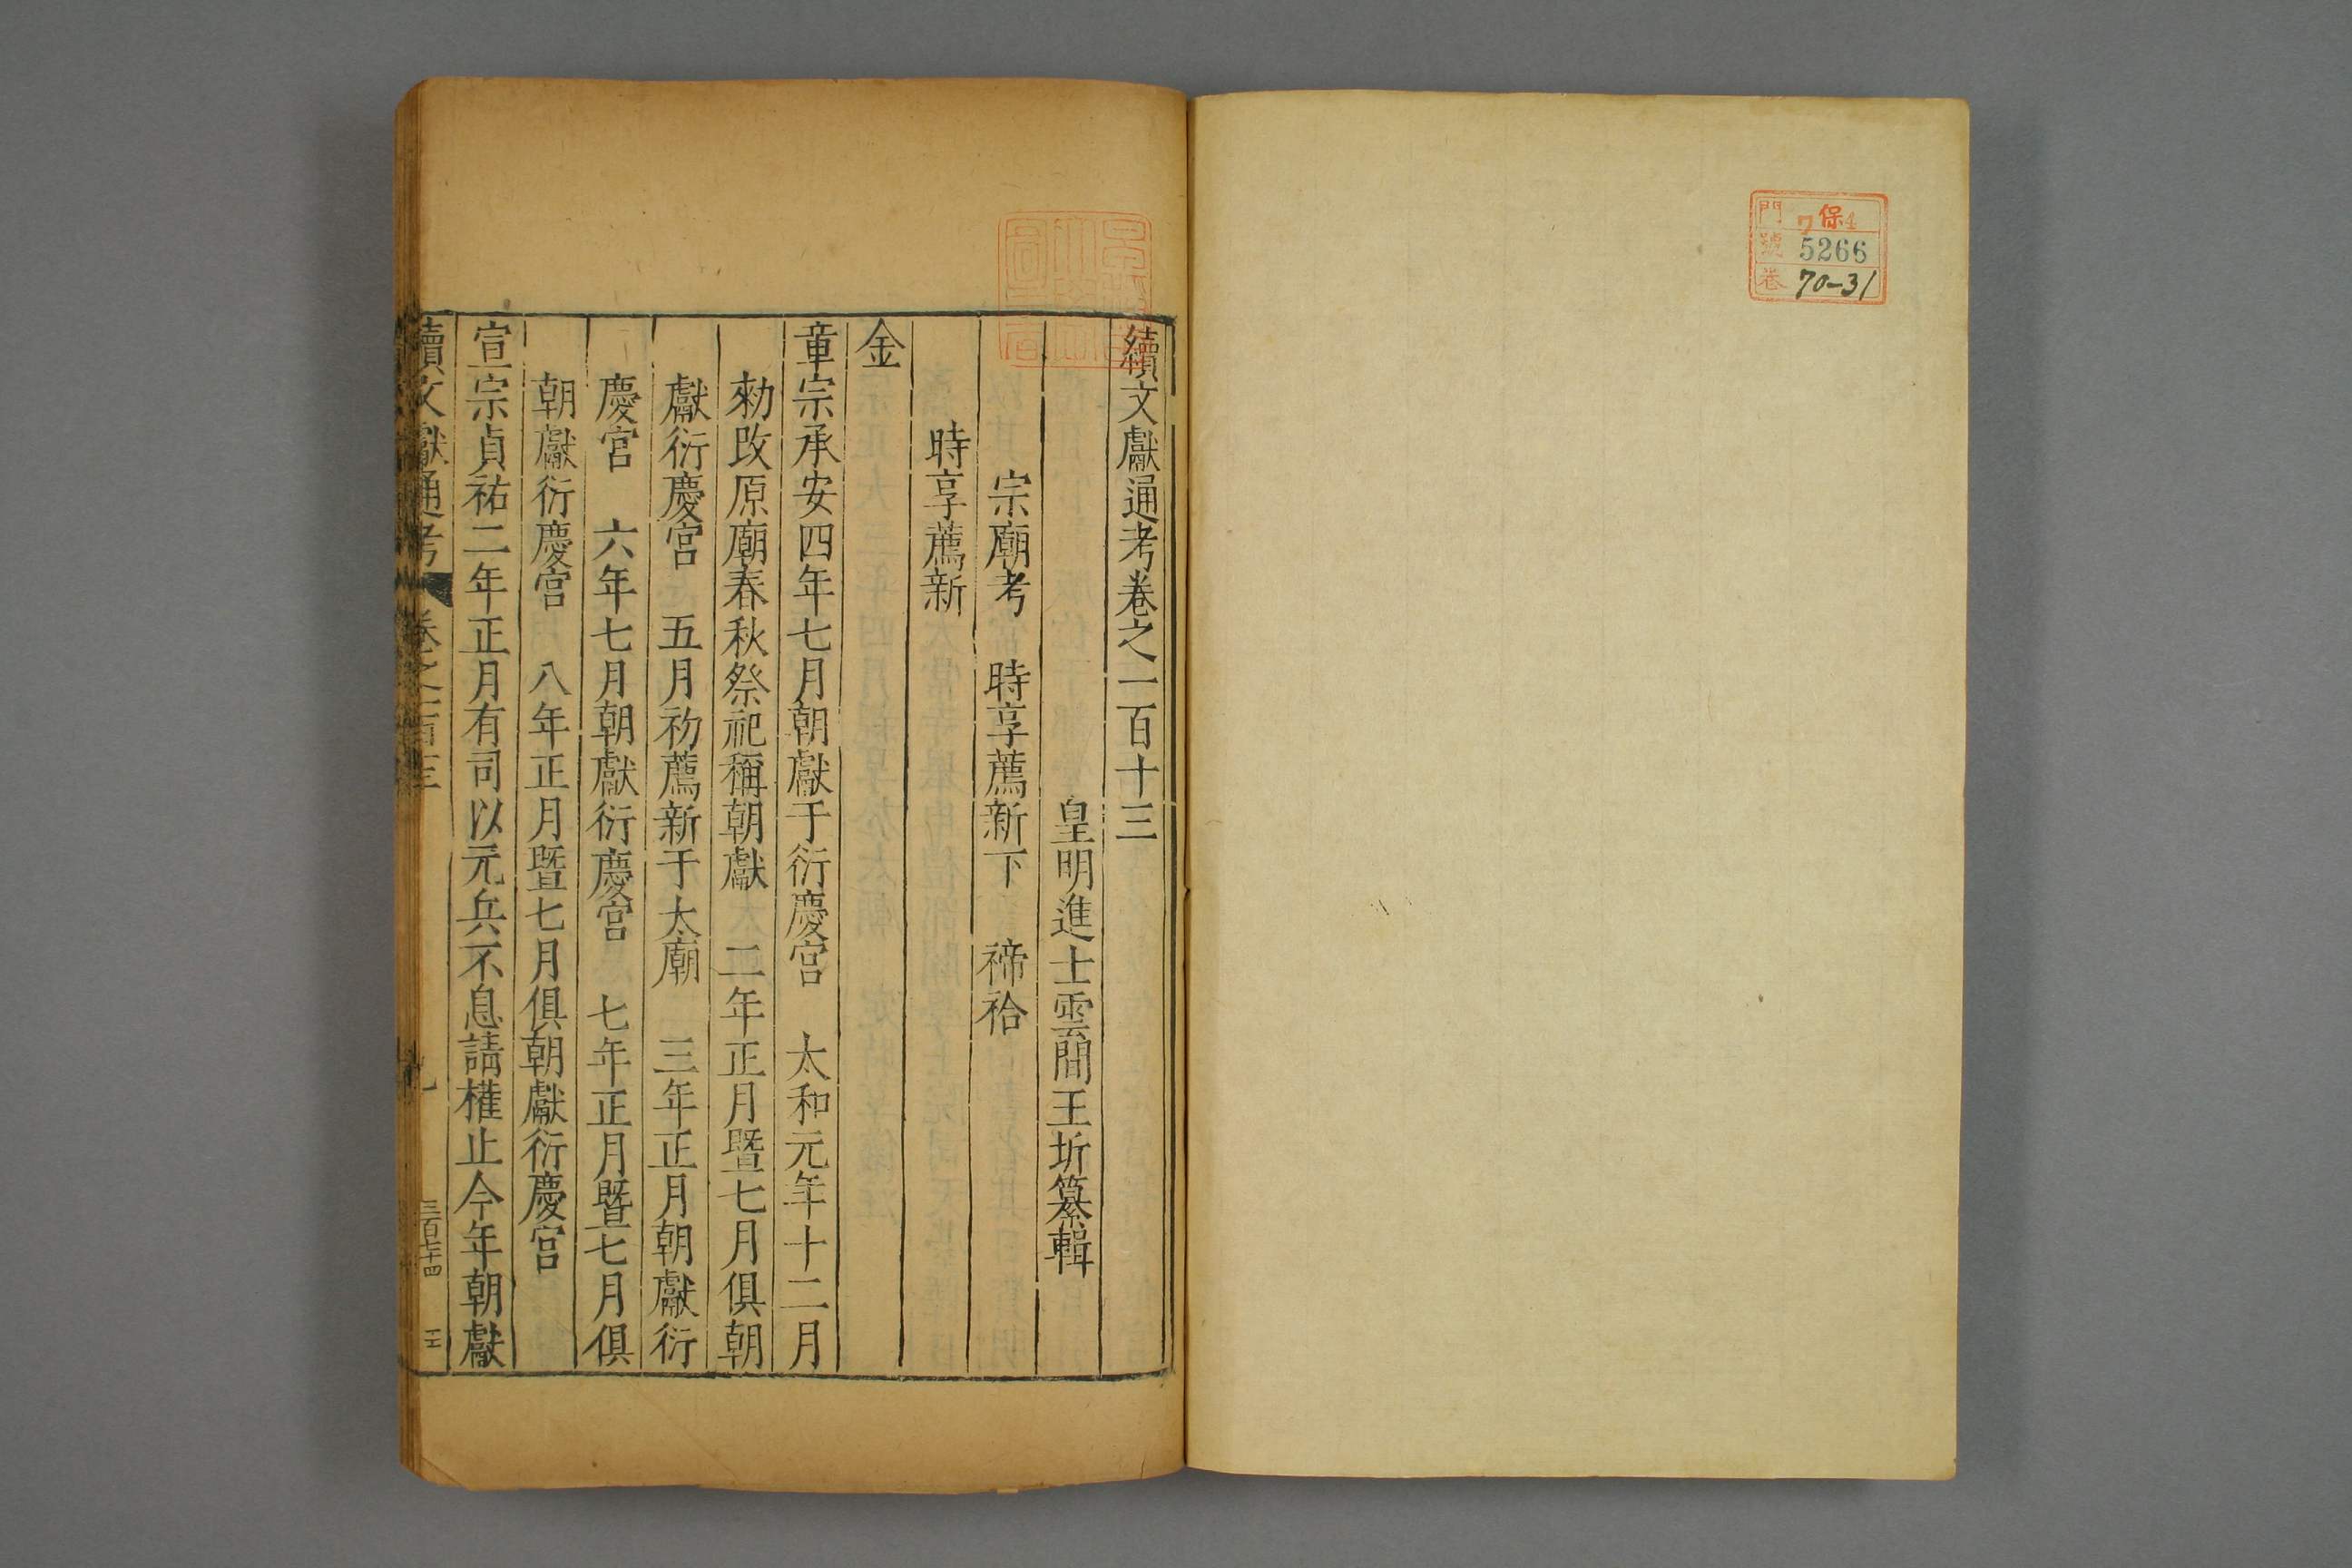 門 7保4
號 5266
巻 70-31
續文獻通考卷之一百十三
皇明進士雲間王圻纂輯
宗廟考 時享薦新下 禘祫
時享薦新
金
章宗承安四年七月朝獻于衍慶宮 太和元年十二月
勑改原廟春秋祭祀稱朝獻 二年正月暨七月俱朝
獻衍慶宮 五月初薦新于太廟 三年正月朝獻衍
慶宮 六年七月朝獻衍慶宮 七年正月暨七月俱
朝獻衍慶宮 八年正月暨七月俱朝獻衍慶宮
宣宗貞祐二年正月有司以元兵不息請權止今年朝獻
續文獻通考 卷之一百十三 三百七十四